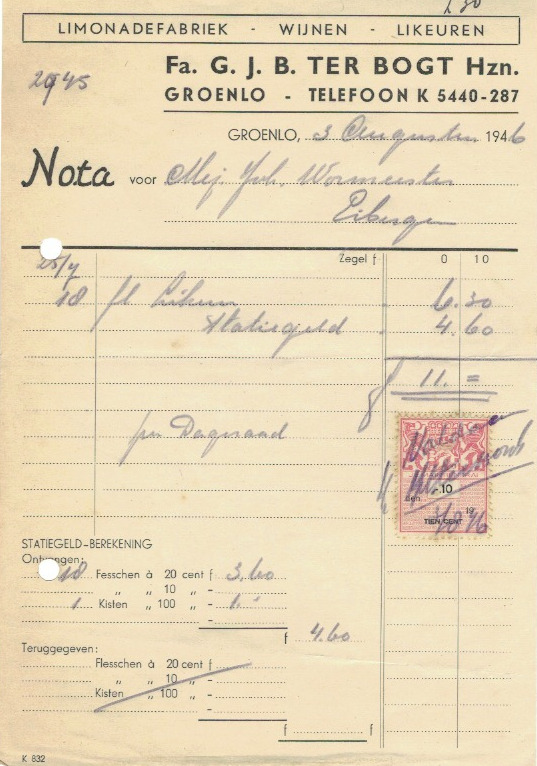 LIMONADEFABRIEK - WIJNEN - LIKEUREN
Fa. G. J. B. TER BOGT Hzn.
GROENLO - TELEFOON K 5440-287
2945
GROENLO, 3 Augustus 1946
Nota voor Mej. Joh. Wormeester
Eibergen
Zegel f 0 10
25/7
18 fl 6.30
Statiegeld 4.60
f 11.=
per Dagraad
-.10
TIEN CENT
STATIEGELD-BEREKENING
Ontvangen:
18 Flesschen à 20 cent f 3,60
„ „ 10 „ -
1 Kisten „ 100 „ - 1.-
f 4.60
Teruggegeven:
Flesschen à 20 cent f
„ „ 10 „ -
Kisten „ 100 „ -
-
f f
K 832